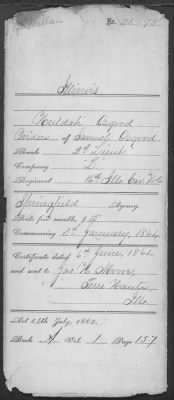 Illinois
Huldah Osgood
Widow of Samuel Osgood
Rank 2d Lieut
Company "L"
Regiment 16th Ills Cav Vols
Springfield Agency
Rate per month, $15
Commencing 5th January, 1864
Certificate dated 6th June, 1864
and sent to Jas H. Moore
Terre Haute
Ills
Act 14th July, 1862.
Book A Vol. 1 Page 157